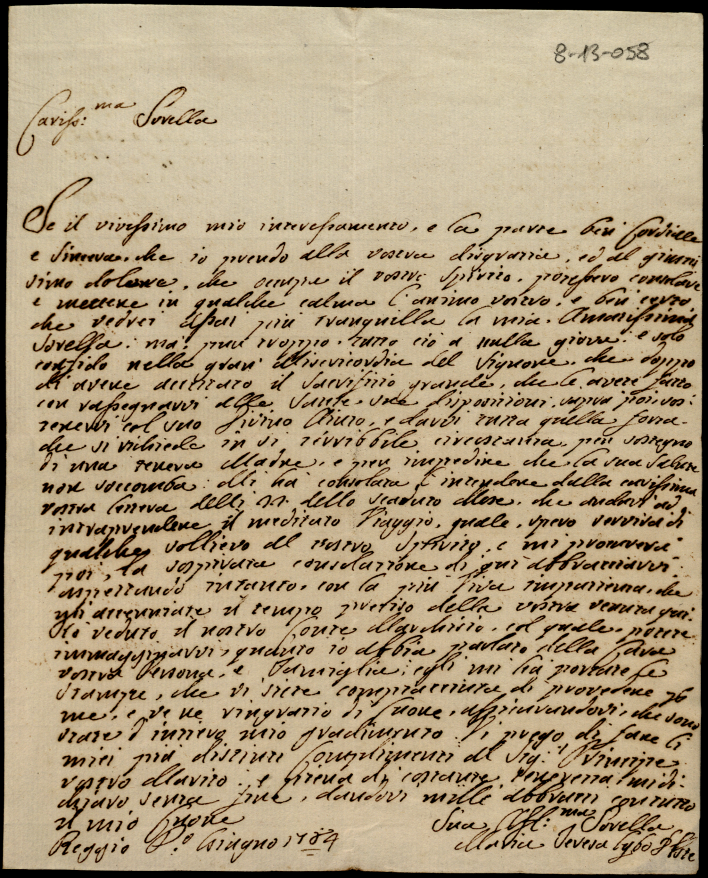 8-13-058
Cariss:ma Sorella
Se il vivissimo mio interessamento, e la parte ben Cordiale
e Sincera, che io prendo alla vostra disgrazia, ed al giustis
simo dolore, che occupa il vostro Spirito, potessero consolare
e mettere in qualche calma l'animo vostro, e ben certo
che vedrei assai più tranquilla la mia Amatissima
Sorella: ma pur troppo tutto ciò a nulla giova: e solo
confido nella gran Misericordia del Signore, che doppo
di avere accettato il Sacrifizio grande, che le avete fatto
con rassegnarvi alle Sante sue disposizioni, saprà poi sos
tenervi col suo Divino Aiuto, e darvi tutta quella forza
che si richiede in sì terribile circostanza, per sostegno
di una tenera Madre, e per impedire che la sua Salute
non soccomba: Mi ha consolata l'intendere dalla carissima
vostra delli dello scaduto Mese, che andavi ad
intraprendere il meditato Viaggio, quale, spero servirà di
qualche sollievo al vostro Spirito, e mi procurerà
poi, la sospirata consolazione di qui abbracciarvi
aspettando intanto, con la più viva impazienza, che
mi accenniate il tempo preciso della vostra venuta qui:
Ho veduto il nostro Conte Marchisio, col quale, potete
immagginarvi, quanto io abbia parlato della Cara
vostra Persona, e Famiglia; egli mi ha portate le
Stampe, che vi siete compiacciuta di provedere p
me, e ve ne ringrazio di Cuore, assicurandovi, che sono
state d'intiero mio gradimento. Vi prego di fare li
miei più distinti Complimenti al Sig.r Principe
vostro Marito; e piena di costante tenerezza mi di
chiaro senza fine, dandovi mille abbracci con tutto
il mio Cuore
Reggio P.o Giugno 1784
Sua Aff:ma Sorella
Maria Teresa Cybo d'Este